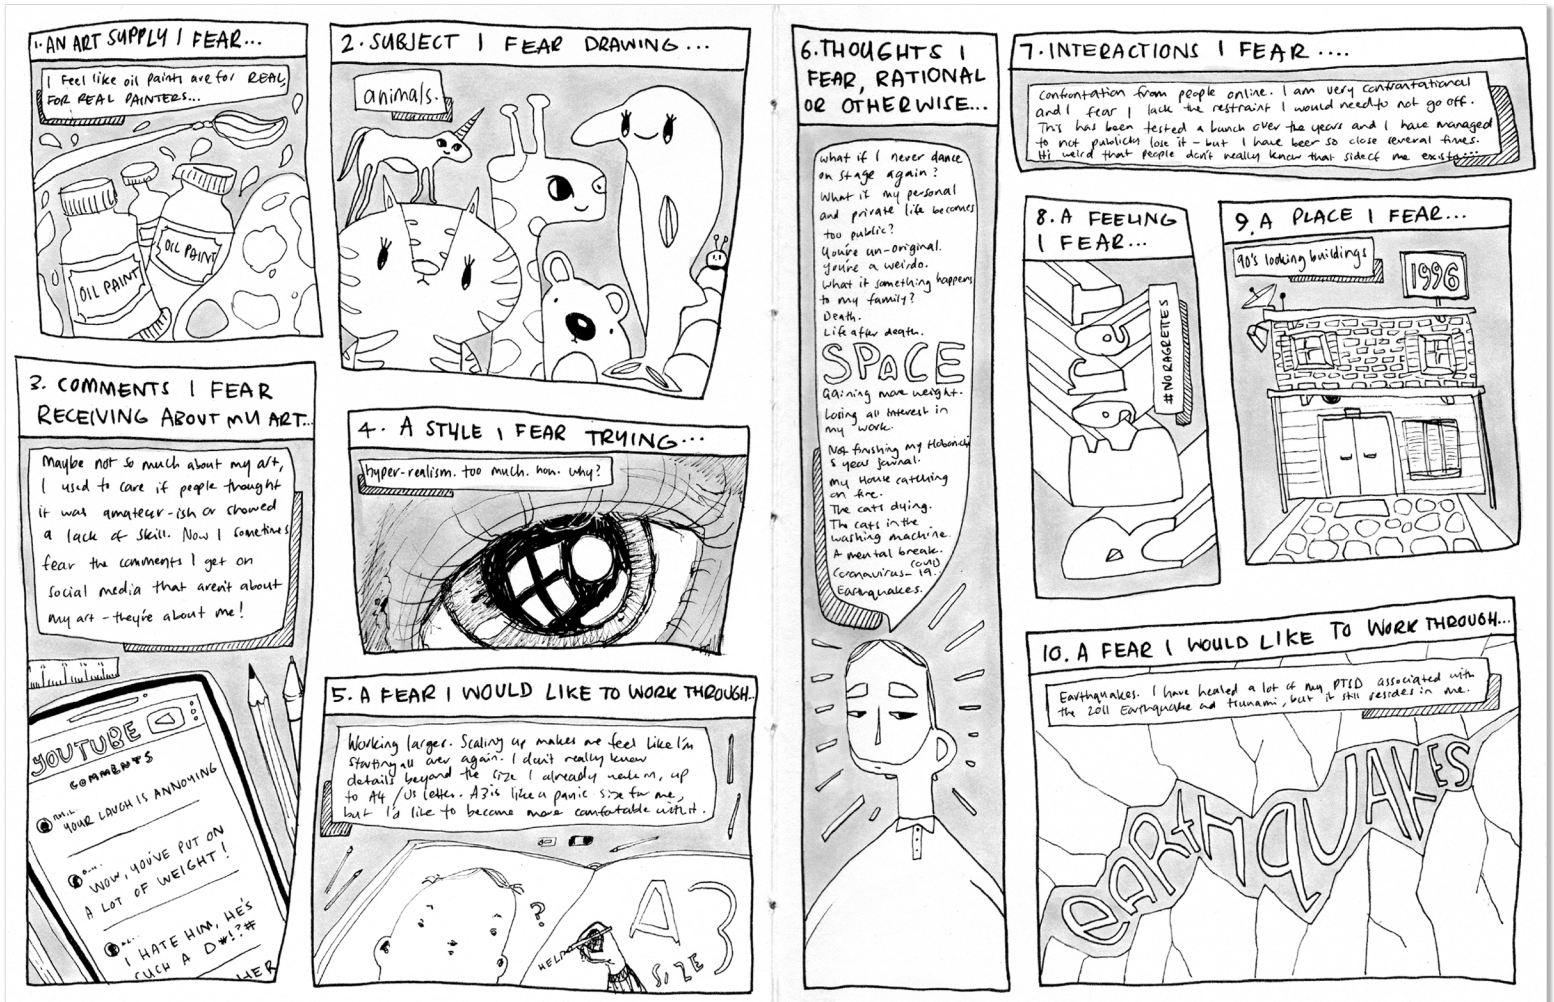 1. AN ART SUPPLY I FEAR...
I feel like oil paints are for REAL,
FOR REAL PAINTERS...
OIL PAINT
OIL PAINT
2. SUBJECT I FEAR DRAWING...
animals.
3. COMMENTS I FEAR
RECEIVING ABOUT MY ART...
Maybe not so much about my art,
I used to care if people thought
it was amateur-ish or showed
a lack of skill. Now I sometimes
fear the comments I get on
social media that aren't about
my art - they're about me!
YOUTUBE
COMMENTS
YOUR LAUGH IS ANNOYING
WOW, YOU'VE PUT ON
A LOT OF WEIGHT!
I HATE HIM, HE'S
SUCH A D*!?#
HER
4. A STYLE I FEAR TRYING...
hyper-realism. too much. how. why?
5. A FEAR I WOULD LIKE TO WORK THROUGH...
Working larger. Scaling up makes me feel like I'm
starting all over again. I don't really know
details beyond the size I already work in, up
to A4 / US letter. A3 is like a panic size for me,
but I'd like to become more comfortable with it.
?
HELP
A3
SIZE
6. THOUGHTS I
FEAR, RATIONAL
OR OTHERWISE...
what if I never dance
on stage again?
What if my personal
and private life becomes
too public?
You're un-original.
You're a weirdo.
What if something happens
to my family?
Death.
Life after death.
SPACE
Gaining more weight.
Losing all interest in
my work.
Not finishing my Hobonichi
5 year journal.
My House catching
on fire.
The cats dying.
The cats in the
washing machine.
A mental break.
Coronavirus - COVID 19.
Earthquakes.
7. INTERACTIONS I FEAR ....
Confrontation from people online. I am very confrontational
and I fear I lack the restraint I would need to not go off.
This has been tested a bunch over the years and I have managed
to not publicly lose it - but I have been so close several times.
It's weird that people don't really know that side of me exists...
8. A FEELING
I FEAR...
Regret
#NORAGRETTES
9. A PLACE I FEAR...
90's looking buildings
1996
10. A FEAR I WOULD LIKE TO WORK THROUGH...
Earthquakes. I have healed a lot of my PTSD associated with
the 2011 Earthquake and tsunami, but it still resides in me.
EARTHQUAKES